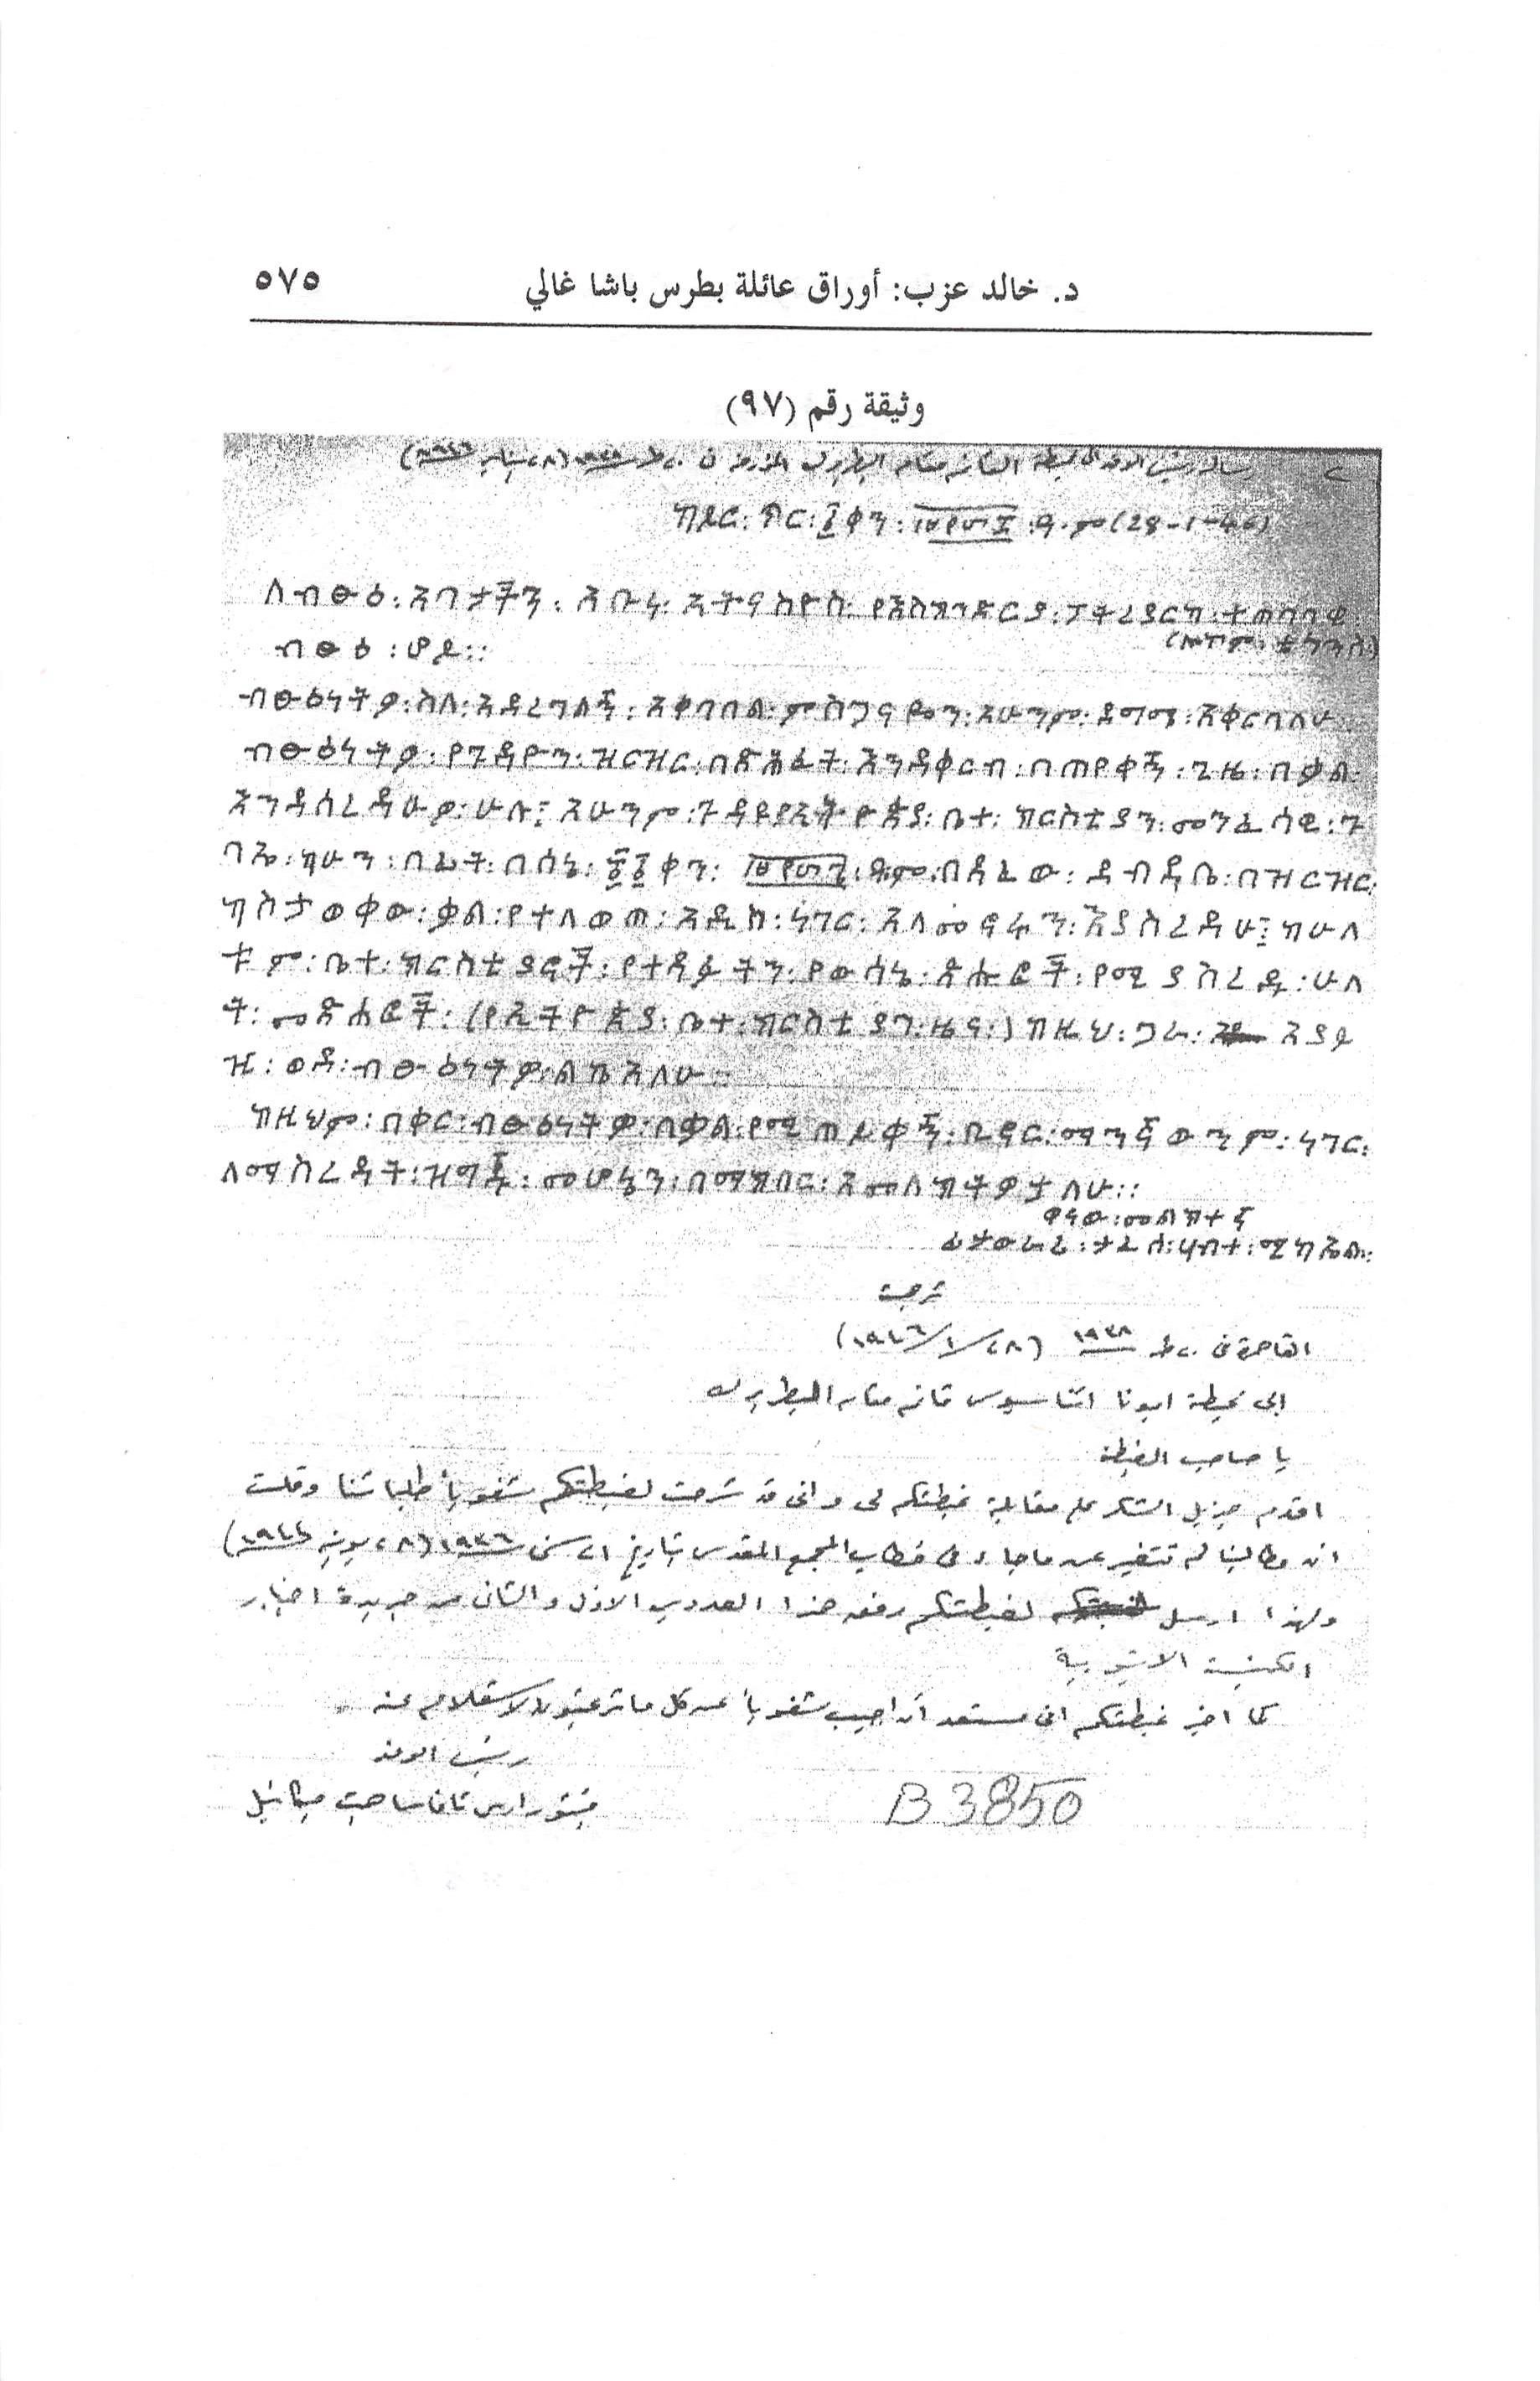 د. خالد عزب: أوراق عائلة بطرس باشا غالي ٥٧٥
وثيقة رقم (٩٧)
ካይሮ: ጥር: ፳ቀን: ፲፱፻፴፰: ዓ.ም (28-1-46)
ለብፁዕ: አባታችን: አቡነ: አትናስዮስ: የእስክንድርያ: ፓትሪያርክ: ተጠባባቂ:
ብፁዕ: ሆይ::
ብፁዕነትዎ: ስለ: አደረግልኝ: አቀባበል: ምስጋናዬን: አሁንም: ደግሜ: አቀርባለሁ
ብፁዕነትዎ: የጉዳዮን: ዝርዝር: በጽሕፈት: እንዳቀርብ: በጠየቀኝ: ጊዜ: በቃል:
እንዳስረዳሁዎ: ሁሉ፤ አሁንም: ጉዳይ የኢትዮጵያ: ቤተ: ክርስቲያን: መንፈሳዊ: ጉ
ባኤ: ካሁን: በፊት: በሰኔ: ፳፩ ቀን: ፲፱፻፴፮: ዓ.ም: በጻፈው: ደብዳቤ: በዝርዝር:
ካስታወቀው: ቃል: የተለወጠ: አዲስ: ነገር: አለመኖሩን: እያስረዳሁ፤ ከሁለ
ቱም: ቤተ: ክርስቲያኖች: የተጻፉትን: የውሳኔ: ጽሑፎች: የሚያስረዱ: ሁለ
ት: መጽሔቶች: (የኢትዮጵያ: ቤተ: ክርስቲያን: ዜና:) ከዚህ: ጋራ: አያይ
ዤ: ወደ: ብፁዕነትዎ: ልኬአለሁ::
ከዚህም: በቀር: ብፁዕነትዎ: በቃል: የሚጠይቀኝ: ቢኖር: ማንኛውንም: ነገር:
ለማስረዳት: ዝግጁ: መሆኔን: በማክበር: አመለክትዎታለሁ::
ዋናው: መልክተኛ
ፊታውራሪ: ታፈሰ: ሀብተ: ሚካኤል::
ترجمة
القاهرة في ٢٠ طر ١٩٣٨ (٢٨/١/١٩٤٦)
إلى غبطة ابونا اثناسيوس قائم مقام البطريرك
يا صاحب الغبطة
اقدم جزيل الشكر على مقابلة غبطتكم لى وانى قد شرحت لغبطتكم شفويا طلباتنا وقلت
ان مطالبنا لم تتغير عن ما جاء فى خطاب المجمع المقدس بتاريخ ٢١ سنى ١٩٣٦ (٢٨ يونيه ١٩٤٤)
ولهذا ارسل لغبطتكم رفق هذا العددين الاول والثانى من جريدة اخبار
الكنيسة الاثيوبية
كما اخبر غبطتكم انى مستعد ان اجيب شفويا عن كل ما ترغبون الاستعلام عنه.
رئيس الوفد
فيتورارى تافاسا هبت ميكائيل
B 3850